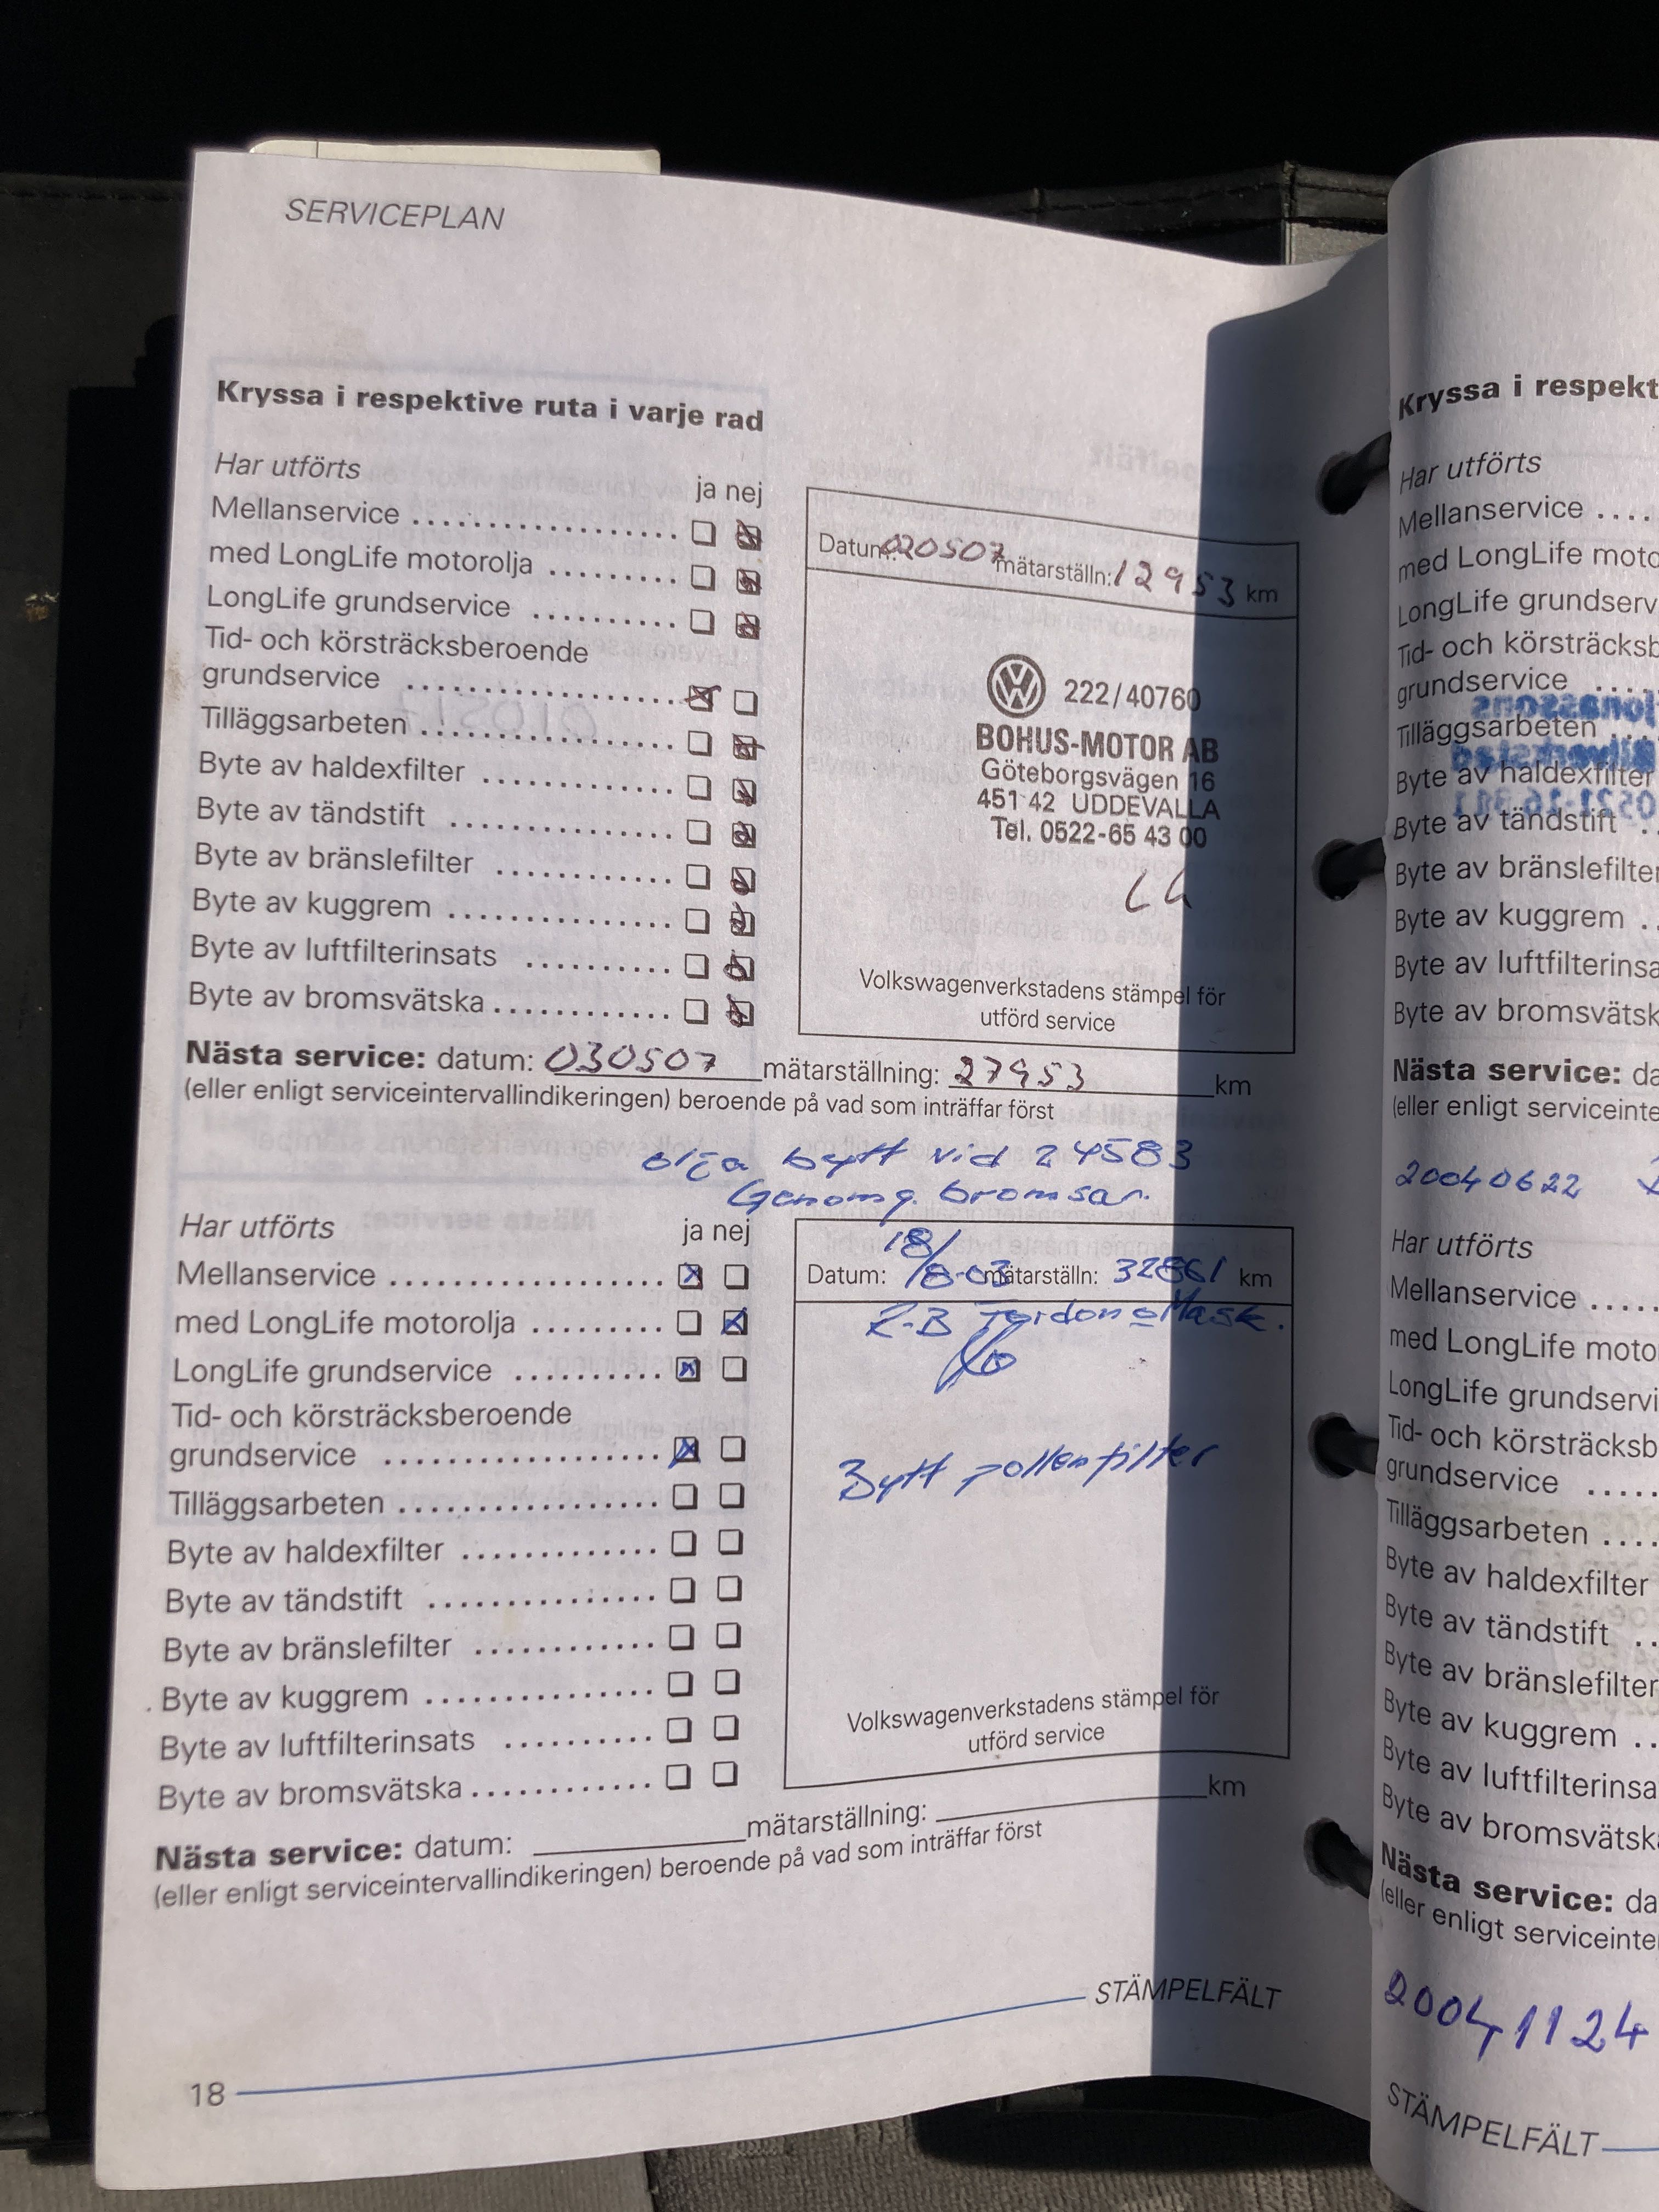 SERVICEPLAN
Kryssa i respektive ruta i varje rad
Har utförts
ja nej
Mellanservice
med LongLife motorolja
LongLife grundservice
Tid- och körsträcksberoende
grundservice
Tilläggsarbeten
Byte av haldexfilter
Byte av tändstift
Byte av bränslefilter
Byte av kuggrem
Byte av luftfilterinsats
Byte av bromsvätska
Datum: 020507 mätarställn: 12953 km
222/40760
BOHUS-MOTOR AB
Göteborgsvägen 16
451 42 UDDEVALLA
Tel. 0522-65 43 00
Volkswagenverkstadens stämpel för
utförd service
Nästa service: datum: 030507 mätarställning: 27953 km
(eller enligt serviceintervallindikeringen) beroende på vad som inträffar först
olja bytt vid 24583
Genomg. bromsar.
Har utförts
ja nej
Mellanservice
med LongLife motorolja
LongLife grundservice
Tid- och körsträcksberoende
grundservice
Tilläggsarbeten
Byte av haldexfilter
Byte av tändstift
Byte av bränslefilter
Byte av kuggrem
Byte av luftfilterinsats
Byte av bromsvätska
Datum: 18/8-03 mätarställn: 32861 km
Bytt pollenfilter
Volkswagenverkstadens stämpel för
utförd service
Nästa service: datum: mätarställning: km
(eller enligt serviceintervallindikeringen) beroende på vad som inträffar först
STÄMPELFÄLT
18
Kryssa i respekt
Har utförts
Mellanservice
med LongLife moto
LongLife grundserv
Tid- och körsträcksb
grundservice
Tilläggsarbeten
Byte av haldexfilter
Byte av tändstift
Byte av bränslefilter
Byte av kuggrem
Byte av luftfilterinsa
Byte av bromsvätsk
Nästa service: da
(eller enligt serviceinte
20040622
Har utförts
Mellanservice
med LongLife moto
LongLife grundservi
Tid- och körsträcksb
grundservice
Tilläggsarbeten
Byte av haldexfilter
Byte av tändstift
Byte av bränslefilter
Byte av kuggrem
Byte av luftfilterinsa
Byte av bromsvätsk
Nästa service: da
(eller enligt serviceinte
20041124
STÄMPELFÄLT